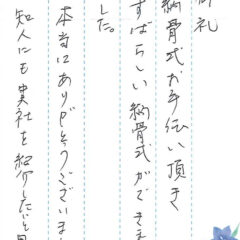 御礼
納骨式お手伝い頂き
すばらしい納骨式ができま
した。
本当にありがとうございまし
知人にも貴社を紹介したいと思